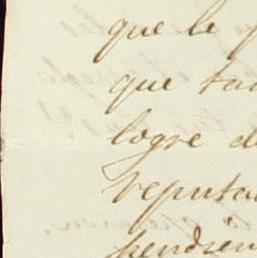 que le
que ta
logre d
reputa
pendien